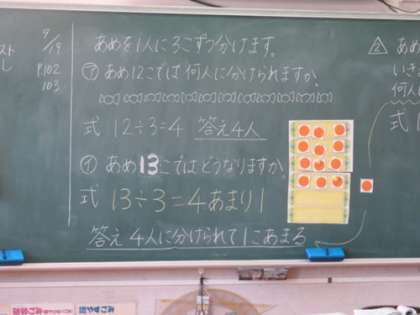 9/19
P.102
103
あめを1人に3こずつ分けます。
㋐ あめ12こでは何人に分けられますか。
式 12÷3=4 答え4人
㋑ あめ13こではどうなりますか。
式 13÷3=4あまり1
答え 4人に分けられて1こあまる
スト
し
2 あめ
いき
何人
式